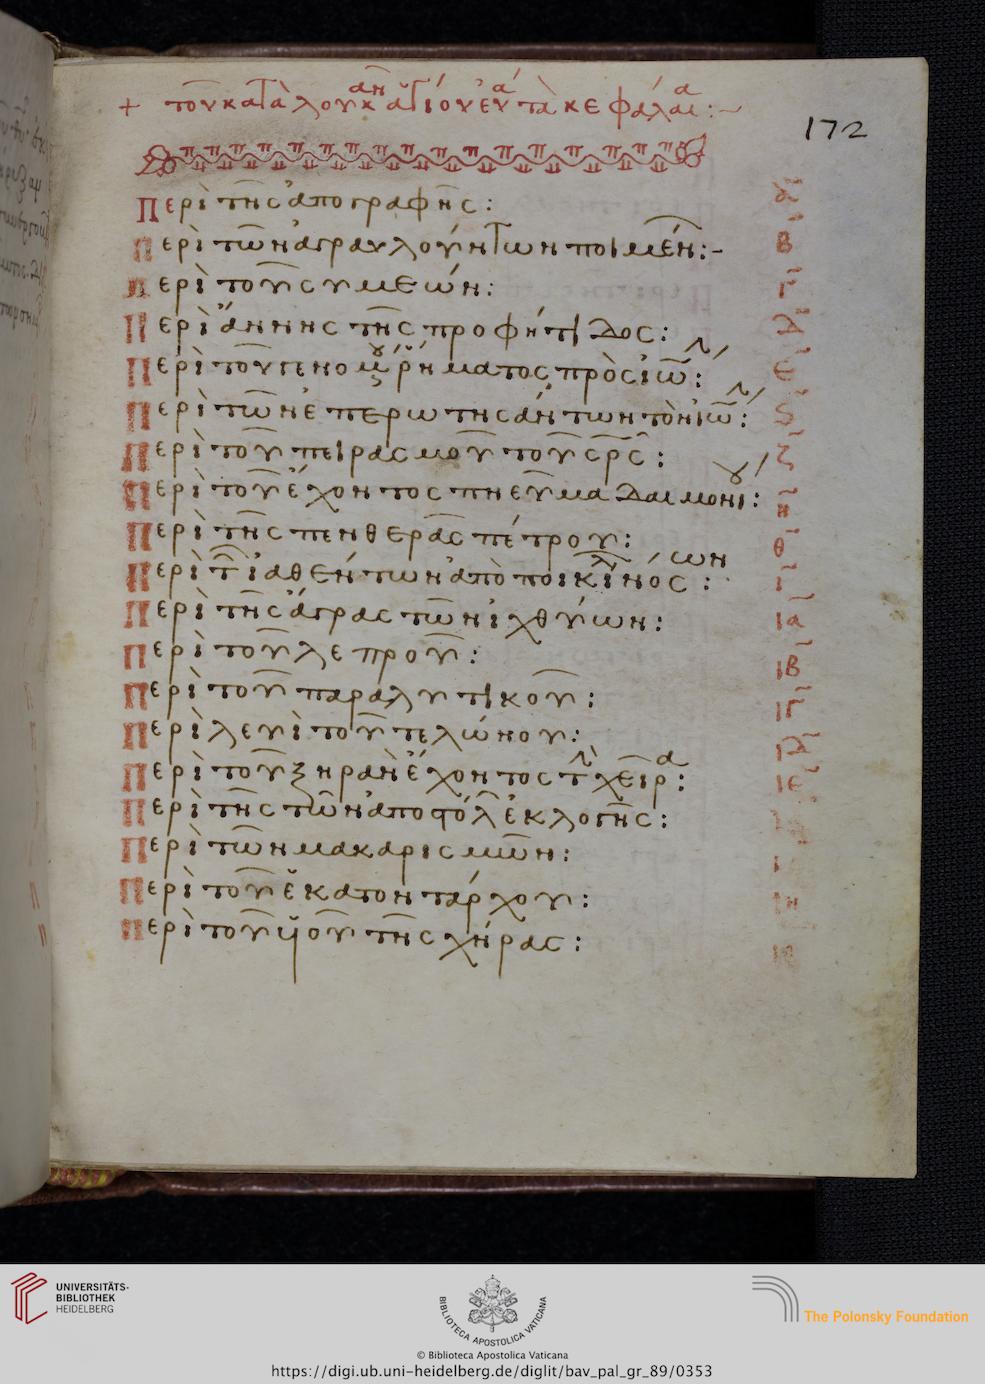 + τοῦ κατὰ λουκᾶν ἁγίου εὐα τὰ κεφάλαια :-
172
Περὶ τῆς ἀπογραφῆς : α
Περὶ τῶν ἀγραυλούντων ποιμένων :- β
Περὶ τοῦ συμεών : γ
Περὶ ἄννης τῆς προφήτιδος : δ
Περὶ τοῦ γενομου ῥήματος πρὸς ἰω : ε
Περὶ τῶν ἐπερωτησάντων τὸν ἰω : ϛ
Περὶ τοῦ πειρασμοῦ τοῦ σρς : ζ
Περὶ τοῦ ἔχοντος πνεῦμα δαιμονίου : η
Περὶ τῆς πενθερᾶς πέτρου : θ
Περὶ τῶν ἰαθέντων ἀπὸ ποικίλων νόσων : ι
Περὶ τῆς ἄγρας τῶν ἰχθύων : ια
Περὶ τοῦ λεπροῦ : ιβ
Περὶ τοῦ παραλυτικοῦ : ιγ
Περὶ λευὶ τοῦ τελώνου : ιδ
Περὶ τοῦ ξηρὰν ἔχοντος τὴν χεῖρα : ιε
Περὶ τῆς τῶν ἀποστόλων ἐκλογῆς :
Περὶ τῶν μακαρισμῶν :
Περὶ τοῦ ἑκατοντάρχου : ιη
Περὶ τοῦ υἱοῦ τῆς χήρας :
UNIVERSITÄTS-
BIBLIOTHEK
HEIDELBERG
BIBLIOTECA APOSTOLICA VATICANA
The Polonsky Foundation
© Biblioteca Apostolica Vaticana
https://digi.ub.uni-heidelberg.de/diglit/bav_pal_gr_89/0353